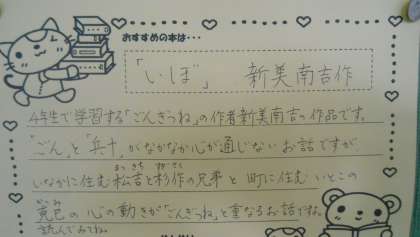 おすすめの本は・・・
「いぼ」 新美南吉作
4年生で学習する「ごんぎつね」の作者新美南吉の作品です。
「ごん」と「兵十」がなかなか心が通じないお話ですが
いなかに住む松吉と杉作の兄弟と町に住むいとこの
克巳の心の動きが「ごんぎつね」と重なるお話ですよ。
読んでみてね。